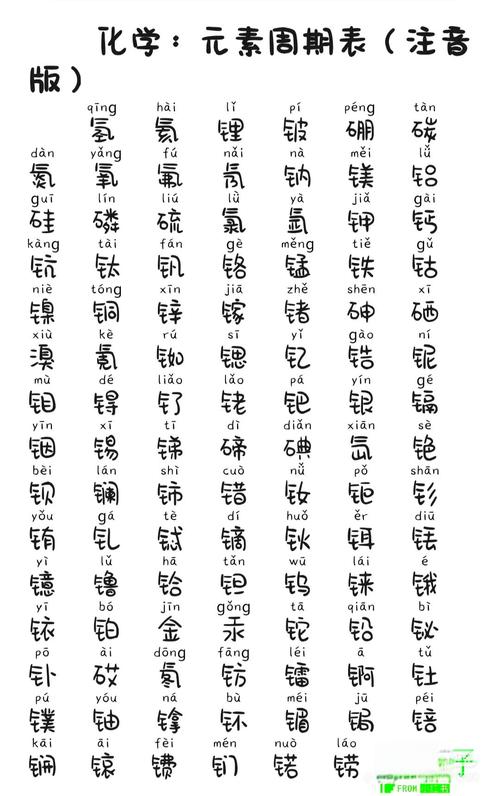 化学：元素周期表（注音
版）
qīng hài lǐ pí péng tàn
氢 氦 锂 铍 硼 碳
dàn yǎng fú nǎi nà měi lǚ
氮 氧 氟 氖 钠 镁 铝
guī lín liú lǜ yà jiǎ gài
硅 磷 硫 氯 氩 钾 钙
kàng tài fán gè měng tiě gǔ
钪 钛 钒 铬 锰 铁 钴
niè tóng xīn jiā zhě shēn xī
镍 铜 锌 镓 锗 砷 硒
xiù kè rú sī yǐ gào ní
溴 氪 铷 锶 钇 锆 铌
mù dé liǎo lǎo pá yín gé
钼 锝 钌 铑 钯 银 镉
yīn xī tī dì diǎn xiān sè
铟 锡 锑 碲 碘 氙 铯
bèi lán shì cuò nǚ pǒ shān
钡 镧 铈 错 钕 钷 钐
yǒu gá tè dí huǒ ěr diū
铕 钆 铽 镝 钬 铒 铥
yì lǔ hā tǎn wū lái é
镱 镥 铪 钽 钨 铼 锇
yī bó jīn gǒng tā qiān bì
铱 铂 金 汞 铊 铅 铋
pō ài dōng fāng léi ā tǔ
钋 砹 氡 钫 镭 锕 钍
pú yóu ná bù méi jū péi
镤 铀 镎 钚 镅 锔 锫
kāi āi fèi mén nuò láo
锎 锿 镄 钔 锘 铹
FROM